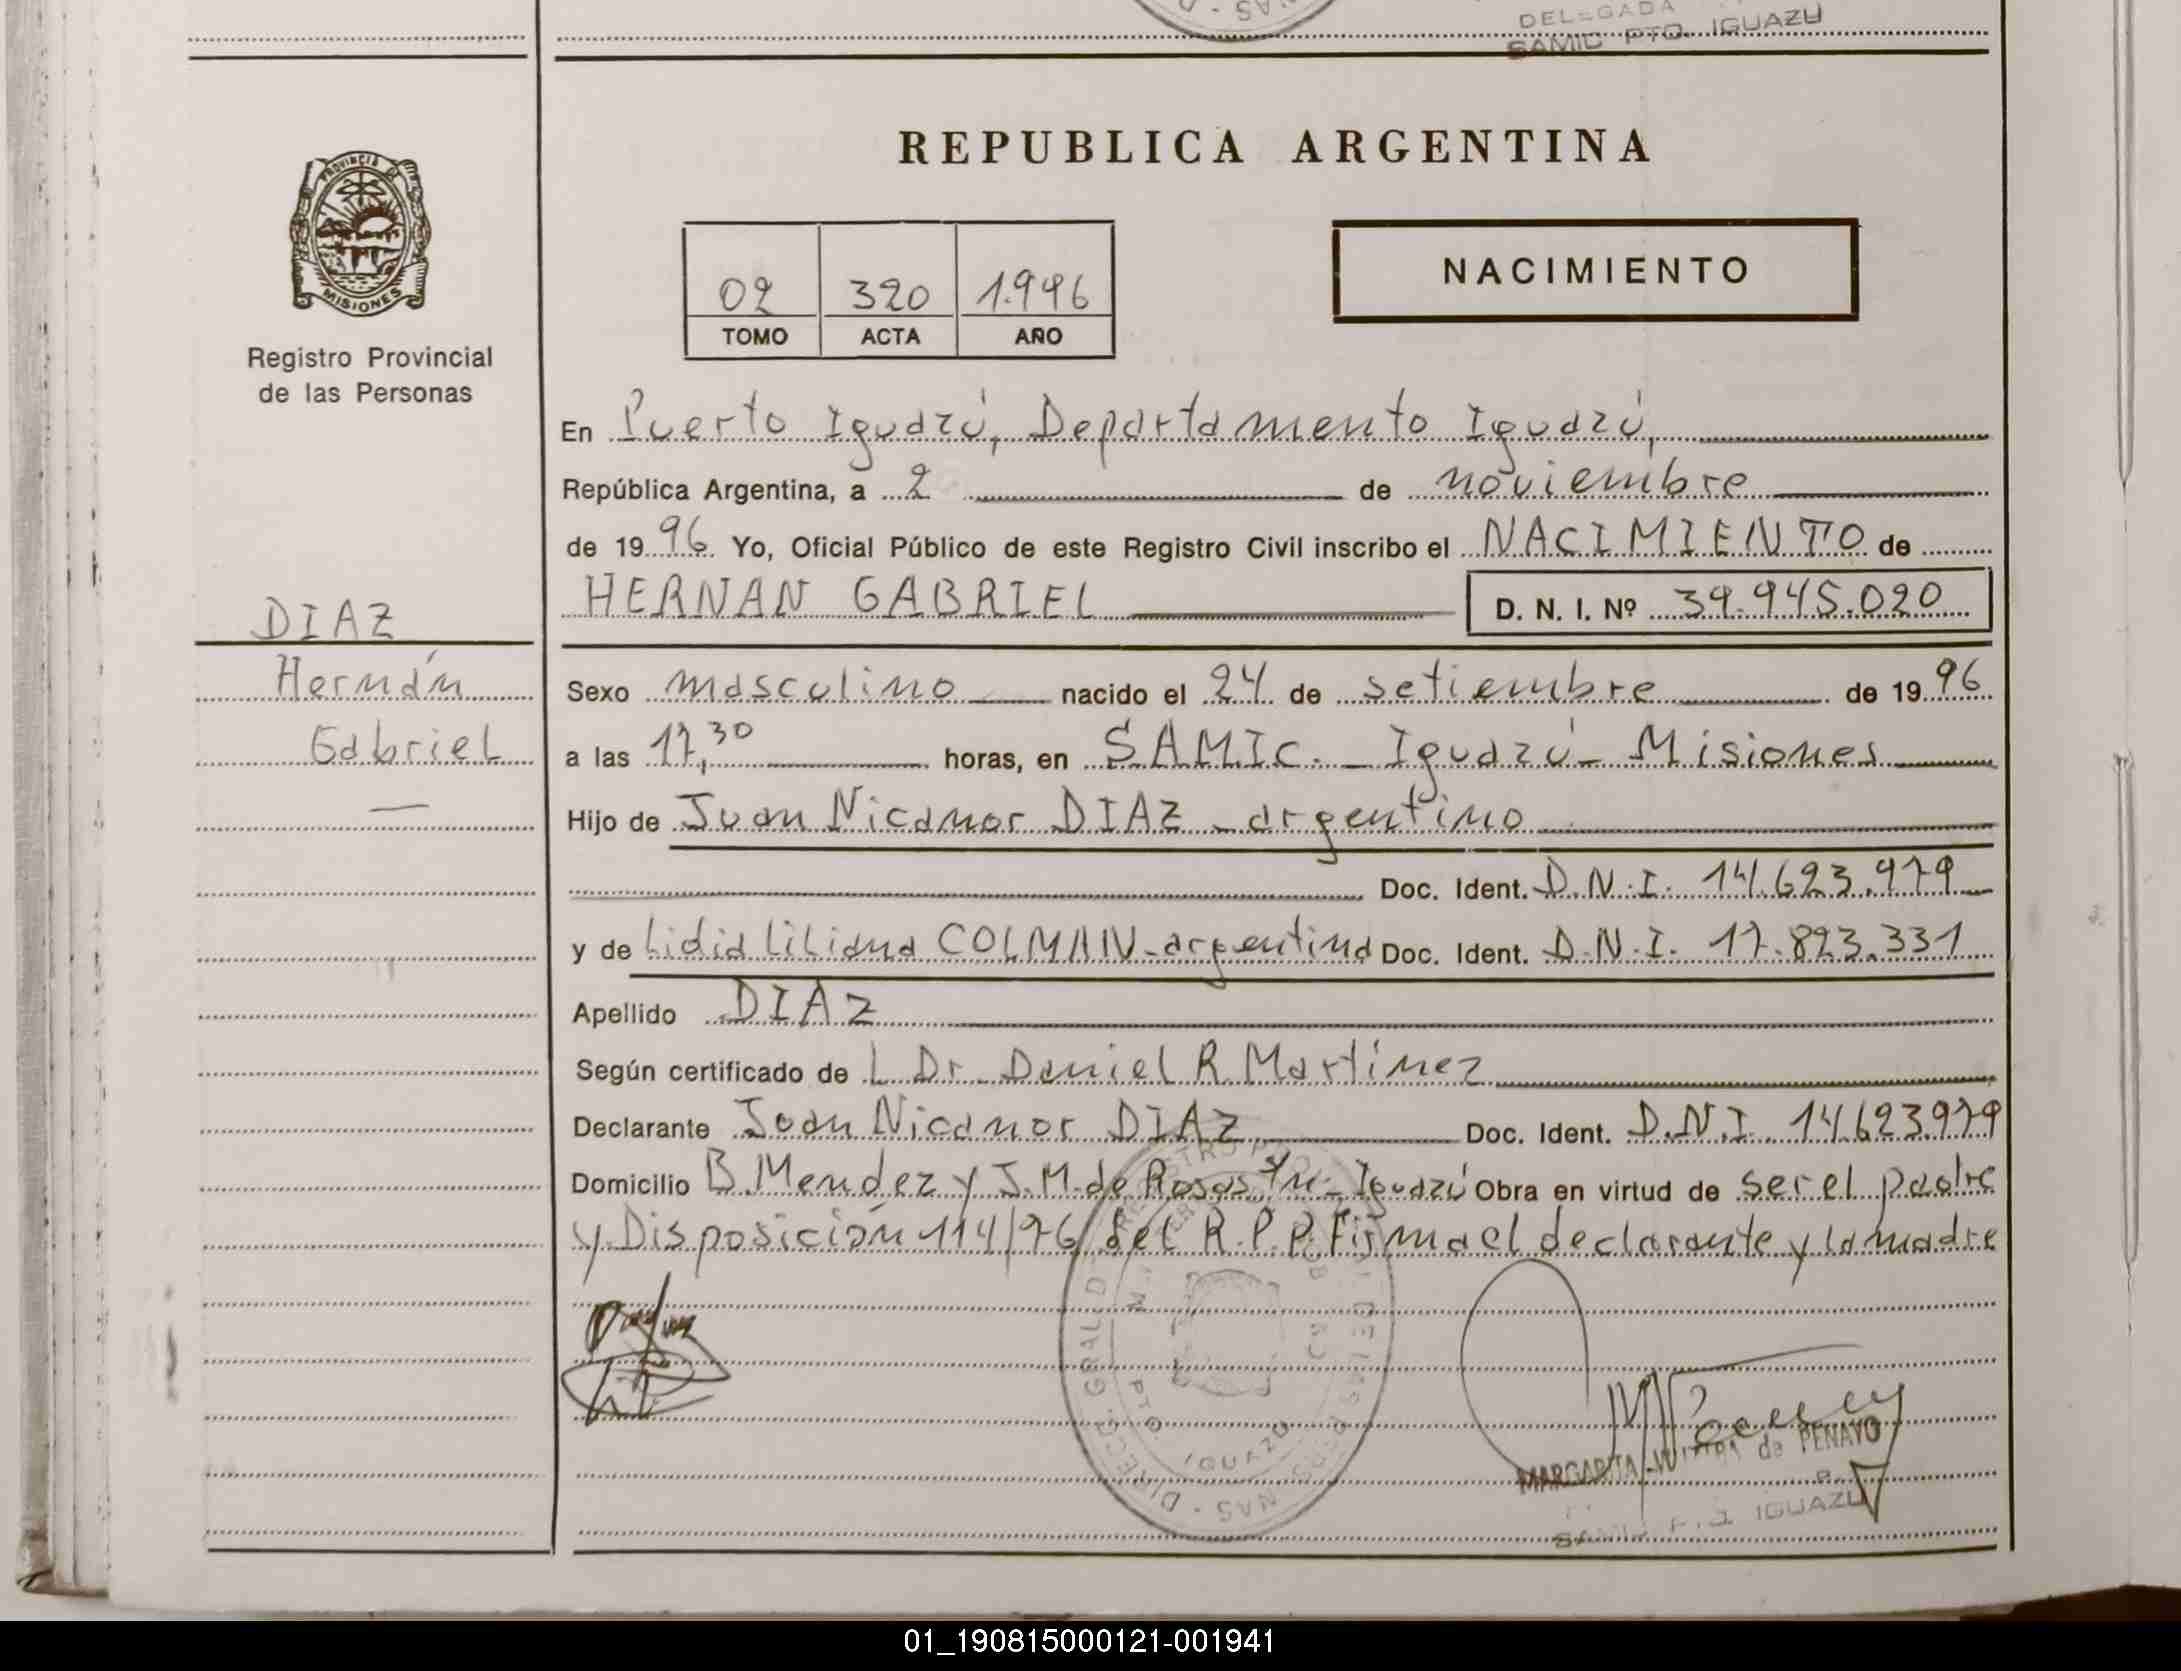 DELEGADA
SAMIC PTO. IGUAZU
PROVINCIA
MISIONES
Registro Provincial
de las Personas
REPUBLICA ARGENTINA
02 320 1.996
TOMO ACTA AÑO
NACIMIENTO
En Puerto Iguazú, Departamento Iguazú,
República Argentina, a 2 de noviembre
de 1996 Yo, Oficial Público de este Registro Civil inscribo el NACIMIENTO de
HERNAN GABRIEL D. N. I. Nº 39.945.020
DIAZ
Hernán
Gabriel
Sexo masculino nacido el 24 de setiembre de 1996
a las 17,30 horas, en SAMIC. _ Iguazú - Misiones
Hijo de Juan Nicanor DIAZ - argentino
Doc. Ident. D.N.I. 14.623.979
y de Lidia Liliana COLMAN - argentina Doc. Ident. D.N.I. 17.823.331
Apellido DIAZ
Según certificado de L Dr. Daniel R Martínez
Declarante Juan Nicanor DIAZ Doc. Ident. D.N.I. 14623979
Domicilio B. Mendez y J. M. de Rosas Iguazú Obra en virtud de ser el padre
y Disposición 114/96 del R.P.P. Firma el declarante y la madre
MARGARITA de PENAYO
IGUAZU
01_190815000121-001941